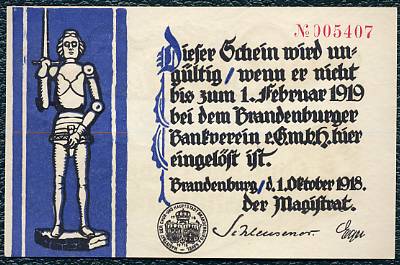 №005407
Dieser Schein wird un-
gültig, wenn er nicht
bis zum 1. Februar 1919
bei dem Brandenburger
Bankverein e.G.m.b.H. hier
eingelöst ist.
Brandenburg, d. 1. Oktober 1918.
der Magistrat.